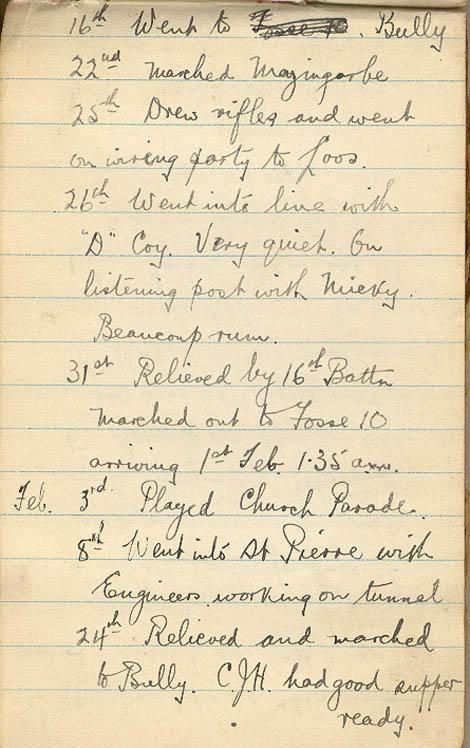 16th Went to Fosse 10. Bully
22nd Marched Mazingarbe
25th Drew rifles and went
on wiring party to Loos.
26th Went into line with
"D" Coy. Very quiet. On
listening post with Micky.
Beaucoup rum.
31st Relieved by 16th Battn
marched out to Fosse 10
arriving 1st Feb. 1.35 a.m.
Feb. 3rd. Played Church Parade.
8th Went into St Pierre with
Engineers working on tunnel
24th Relieved and marched
to Bully. C.J.H. had good supper
ready.